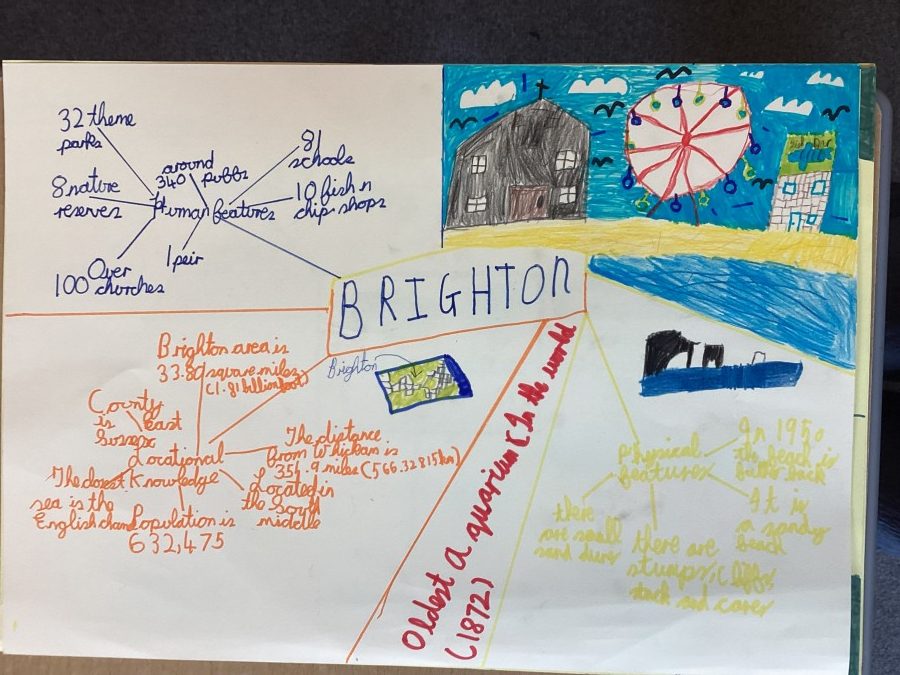 32 theme
parks
8 nature
reserves
Over
100 churches
around
340 pubbs
1 peir
Human features
81
schools
10 fish n
chip shops
BRIGHTON
Brighton area is
33.89 square miles
County
is East
Sussex
Locational
Knowledge
The closest
sea is the
English channel
Population is
632,475
The distance
from Whickham is
354.9 miles (566.32815km)
Located in
the South
middle
Brighton
Oldest A quarium (In the world
(1872)
Physical
features
In 1950
the beach is
back
It is
a sandy
beach
there
are small
sand dunes
there are
stumps, cliffs,
stack and caves